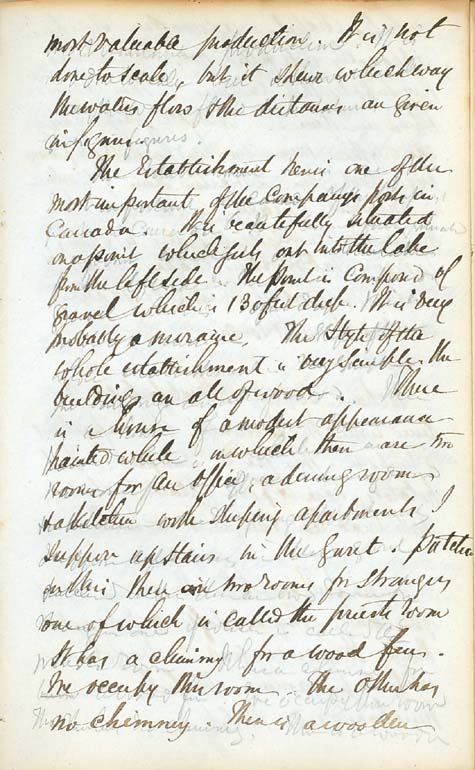 most valuable production. It is not
done to scale, but it shews which way
the water flows & the distances are given
in figures.
The Establishment here is one of the
most important of the Company's posts in
Canada. It is beautifully situated
on a point which juts out into the lake
from the left side. The point is composed of
gravel which is 130 feet deep. It is very
probably a moraine. The Style of the
whole establishment is very simple, the
buildings are all of wood. There
is a house of a modest appearance
painted white, in which there are two
rooms for an office, a dining room
& a kitchen with sleeping apartments I
suppose upstairs in the garret.
this there are two rooms for strangers
one of which is called the priests room
It has a chimney for a wood fire.
We occupy this room. The other has
no chimney. There is a wooden